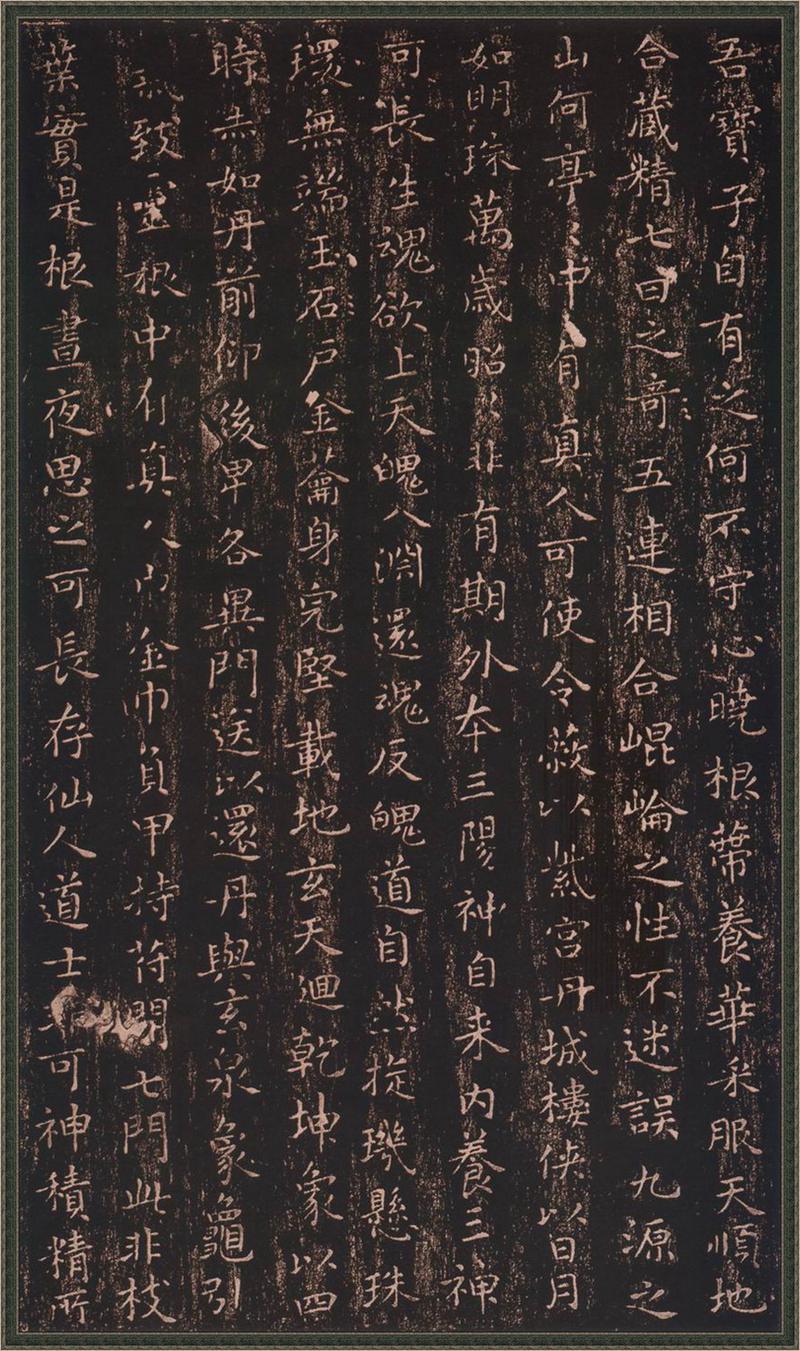 吾寶子自有之何不守心曉根蔕養華采服天順地
合藏精七日之奇五連相合崐崘之性不迷誤九源之
山何亭〻中有真人可使令蔽以紫宫丹城樓俠以日月
如明珠萬歲昭〻非有期外夲三陽神自来内養三神
可長生魂欲上天魄入淵還魂反魄道自然㧐璣懸珠
環無端玉石戸金籥身完堅載地玄天迴乾坤象以四
時赤如丹前仰後卑各異門送以還丹與玄泉象龜引
氣致靈根中有真人巾金巾負甲持苻開七門此非枝
葉實是根晝夜思之可長存仙人道士非可神積精所